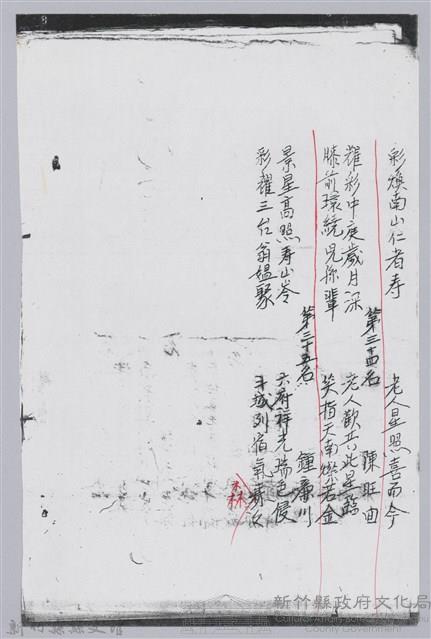 彩煥南山仁者寿　老人星照喜而今
第三十四名　陳旺回
耀彩中庚歲月深　老人歡共此星臨
膝前環繞兒孫輩　笑指天南燦若金
第三十五名　鍾　川
景星高照寿山岑　六府祥光瑞色侵
彩耀三台翁媼聚　斗城列宿氣森久
森
新竹縣政府文化局